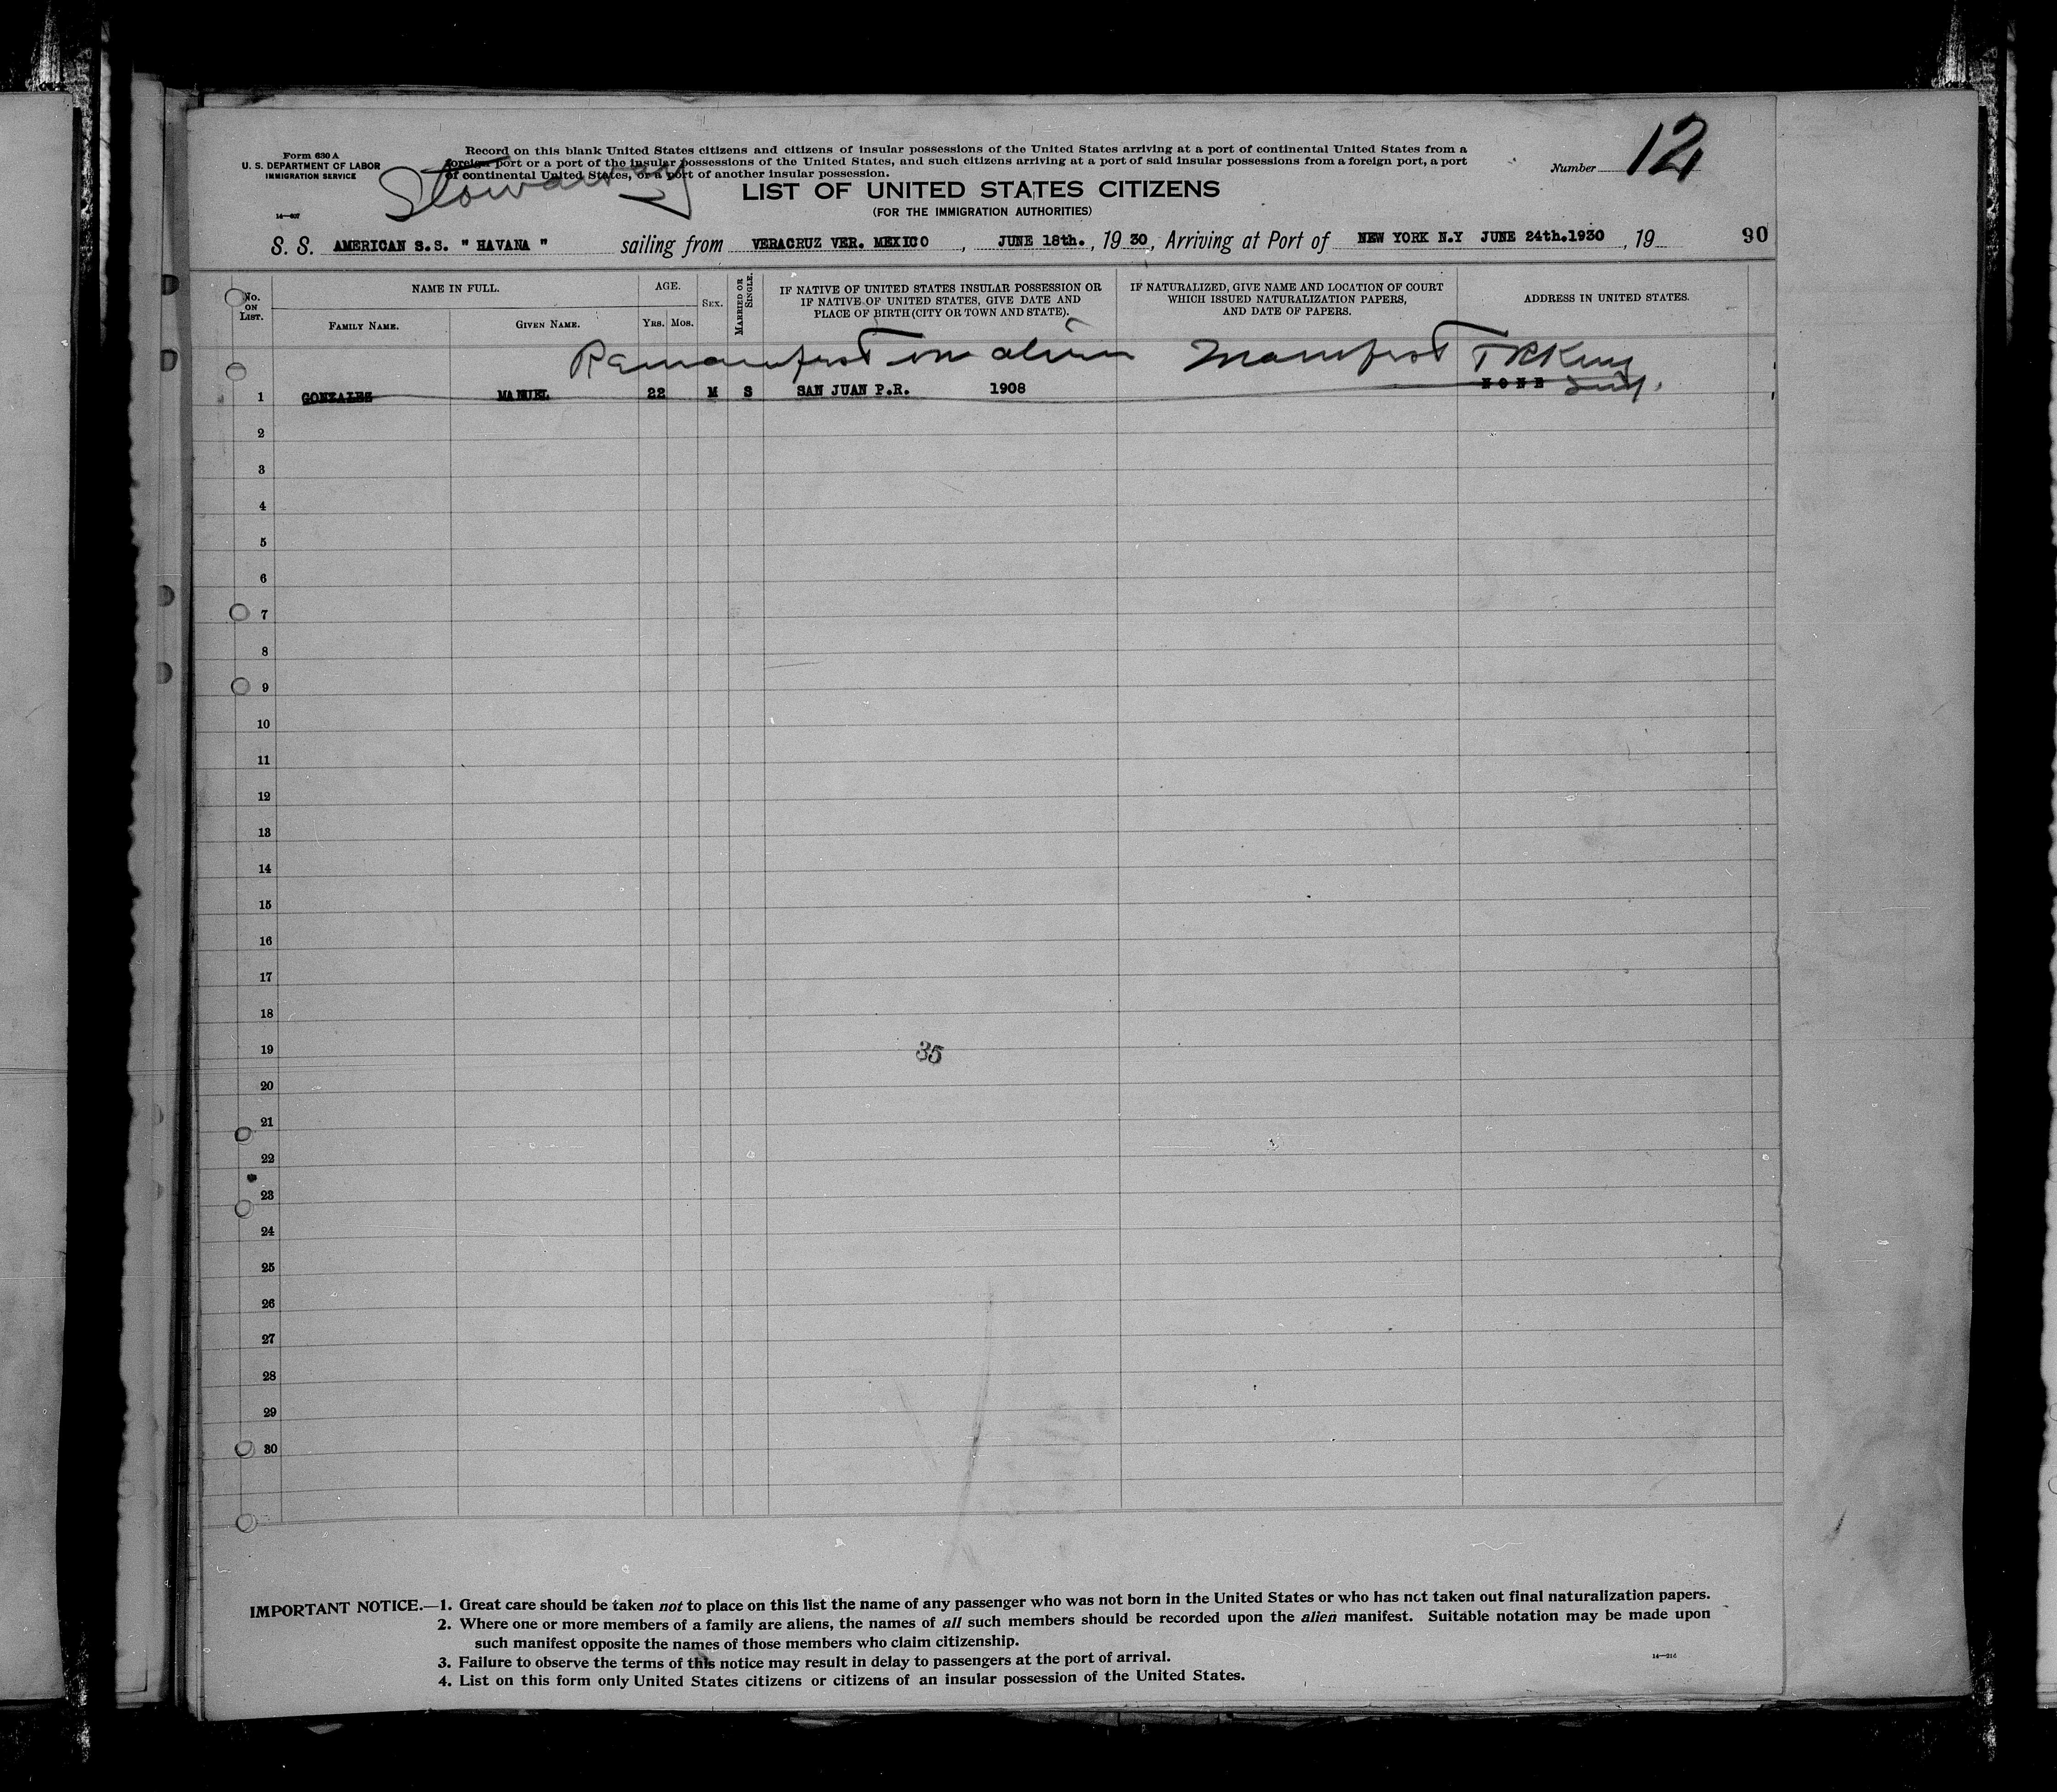 Form 630 A
U. S. DEPARTMENT OF LABOR
IMMIGRATION SERVICE
14—407
Record on this blank United States citizens and citizens of insular possessions of the United States arriving at a port of continental United States from a
foreign port or a port of the insular possessions of the United States, and such citizens arriving at a port of said insular possessions from a foreign port, a port
of continental United States, or a port of another insular possession.
Stowaway
Number 12
LIST OF UNITED STATES CITIZENS
(FOR THE IMMIGRATION AUTHORITIES)
S. S. AMERICAN S.S. " HAVANA " sailing from VERACRUZ VER. MEXICO , JUNE 18th. , 19 30, Arriving at Port of NEW YORK N.Y JUNE 24th.1930 , 19 90
No. ON LIST.
NAME IN FULL.
FAMILY NAME. GIVEN NAME.
AGE.
YRS. MOS.
SEX.
MARRIED OR SINGLE.
IF NATIVE OF UNITED STATES INSULAR POSSESSION OR
IF NATIVE OF UNITED STATES, GIVE DATE AND
PLACE OF BIRTH (CITY OR TOWN AND STATE).
IF NATURALIZED, GIVE NAME AND LOCATION OF COURT
WHICH ISSUED NATURALIZATION PAPERS,
AND DATE OF PAPERS.
ADDRESS IN UNITED STATES.
Remanifest on alien Manifest
1 GONZALEZ MANUEL 22 M S SAN JUAN P.R. 1908 NONE
2
3
4
5
6
7
8
9
10
11
12
13
14
15
16
17
18
19
35
20
21
22
23
24
25
26
27
28
29
30
IMPORTANT NOTICE.—1. Great care should be taken not to place on this list the name of any passenger who was not born in the United States or who has not taken out final naturalization papers.
2. Where one or more members of a family are aliens, the names of all such members should be recorded upon the alien manifest. Suitable notation may be made upon
such manifest opposite the names of those members who claim citizenship.
3. Failure to observe the terms of this notice may result in delay to passengers at the port of arrival.
14—216
4. List on this form only United States citizens or citizens of an insular possession of the United States.